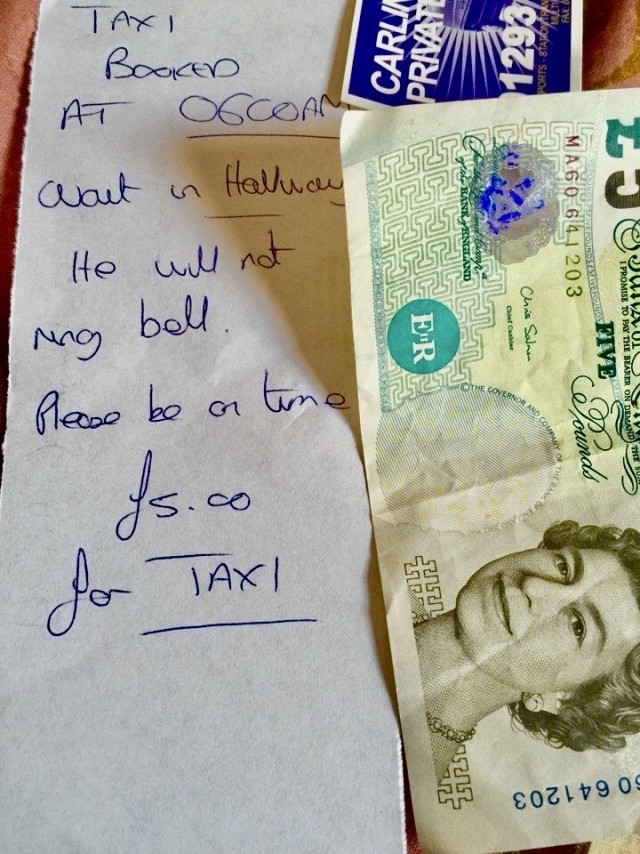 TAXI
BOOKED
AT 0600AM
Wait in Hallway
He will not
ring bell.
Please be on time
£5.00
for TAXI
CARLIN
PRIVATE
1293
PORTS - STATION TRAN
MULTI
FAX 0
£5
MA60 641203
of the BANK of ENGLAND
Chris Salmon
Chief Cashier
E II R
I PROMISE TO PAY THE BEARER ON DEMAND THE
FIVE
Pounds
© THE GOVERNOR AND COMPANY OF THE BANK OF ENGLAND 2002
60 641203